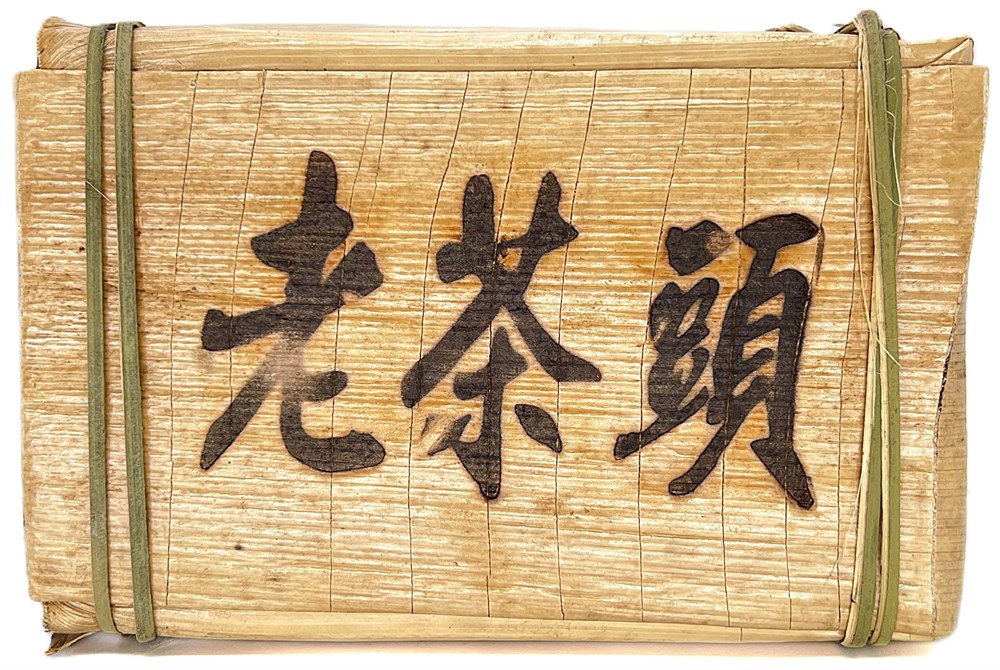 老茶頭